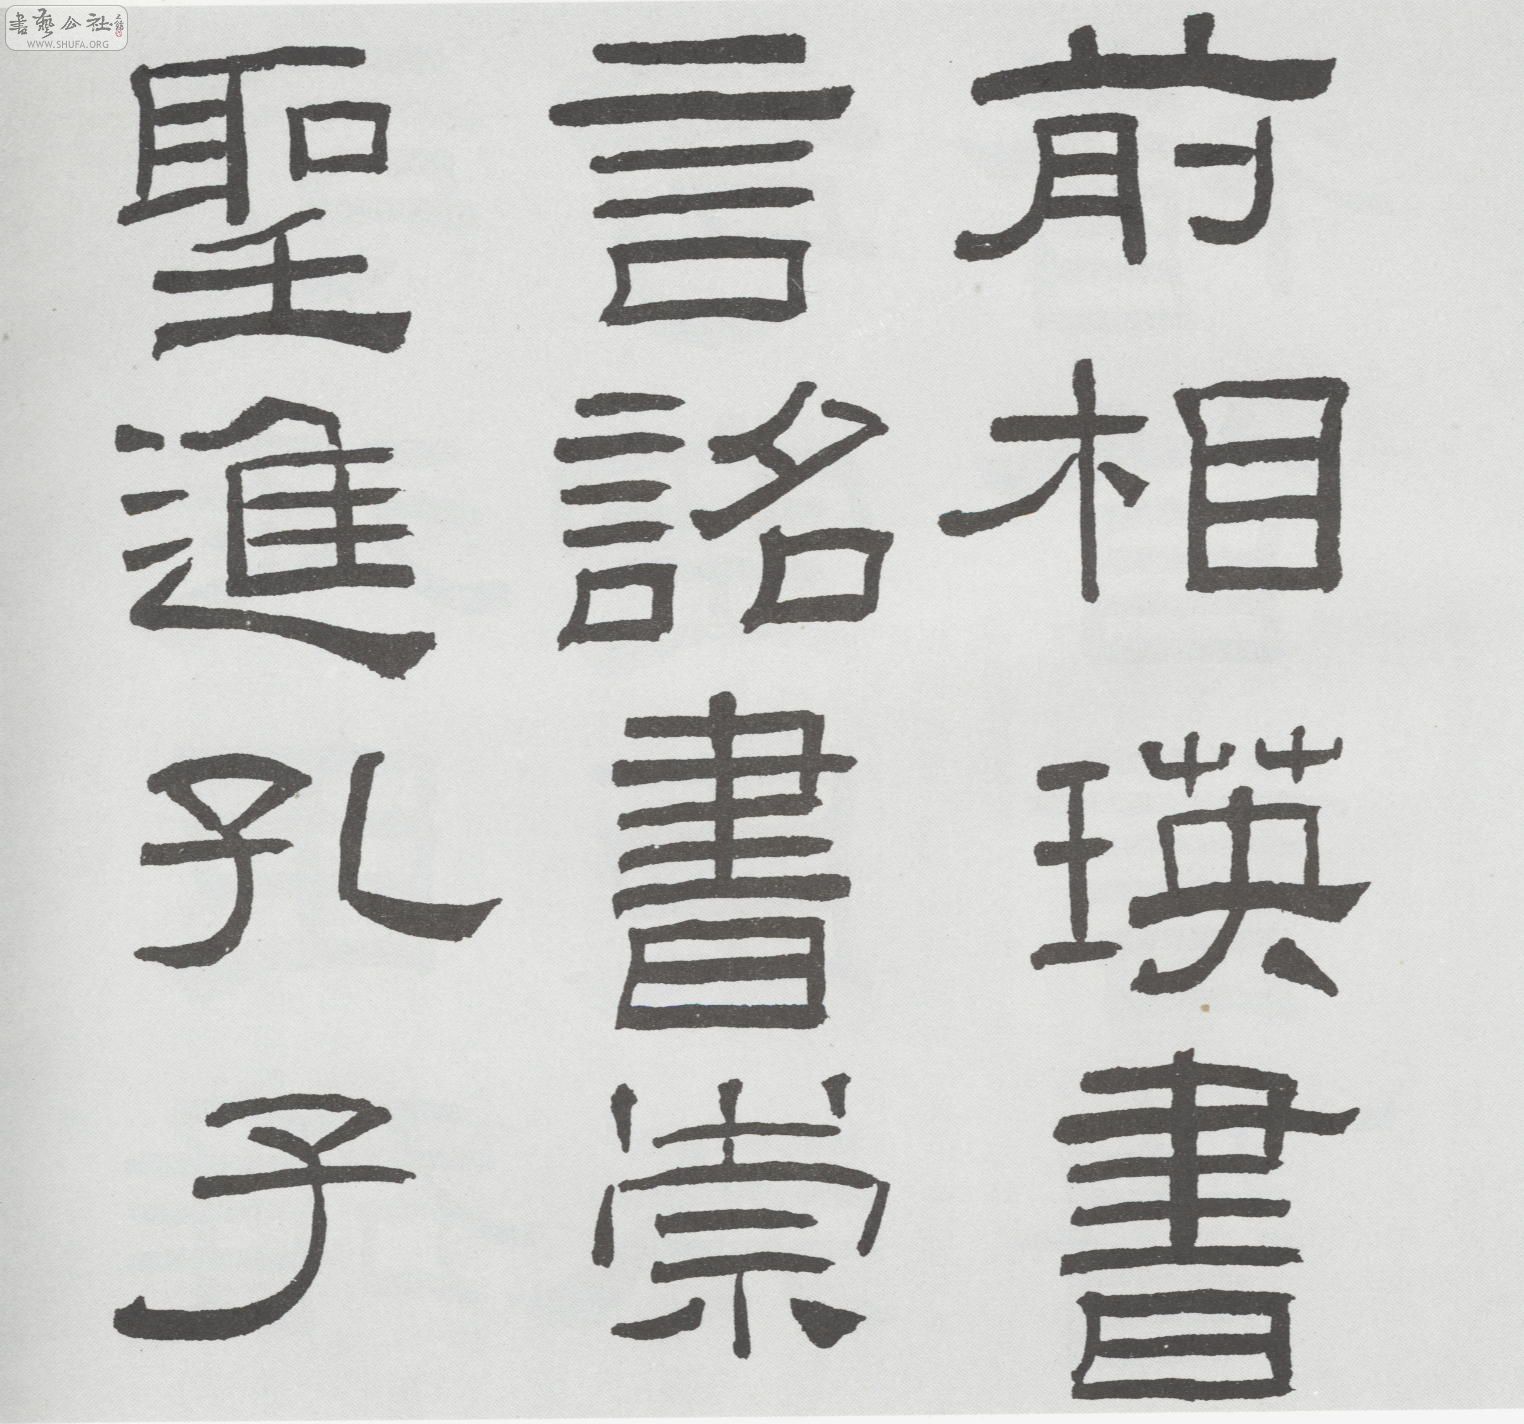 前相瑛書
言詔書崇
聖進孔子
書藝公社
WWW.SHUFA.ORG